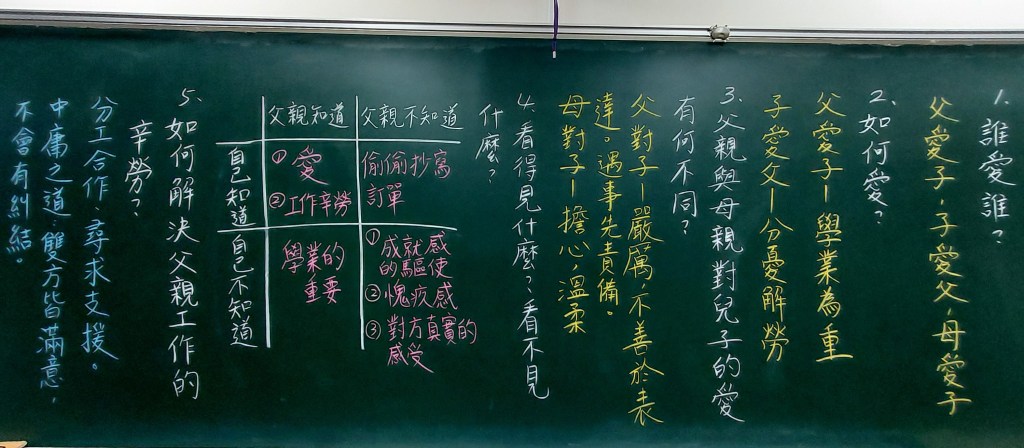 1. 誰愛誰？
父愛子，子愛父，母愛子
2. 如何愛？
父愛子—學業為重
子愛父—分憂解勞
3. 父親與母親對兒子的愛
有何不同？
父對子—嚴厲，不善於表
達。遇事先責備。
母對子—擔心，溫柔
4. 看得見什麼？看不見
什麼？
父親知道
父親不知道
自己知道
①愛
②工作辛勞
偷偷抄寫
訂單
自己不知道
學業的
重要
①成就感
的驅使
②愧疚感
③對方真實的
感受
5. 如何解決父親工作的
辛勞？
分工合作，尋求支援。
中庸之道，雙方皆滿意，
不會有糾結。